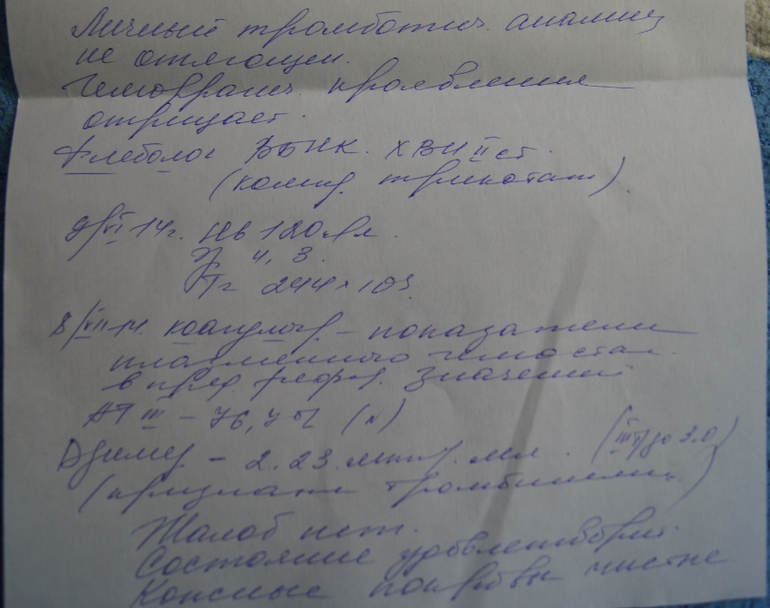 Личный тромботич. анамнез
не отягощен.
Геморрагич. проявления
отрицает.
Флеболог ВБНК. ХВН II ст.
(компр. трикотаж)
/VI 14г. Нв 120 г/л.
4,3.
Тг 244 × 10
8/VII-14. коагулогр. – показатели
плазменного гемостаз.
в пред. реф. значений
АТ III – 76,7% (н)
Dдимер – 2.23 мкг/мл. (III до 3.0)
(признаки тромбинеми
Жалоб нет.
Состояние удовлетворит.
Кожные покровы чистые